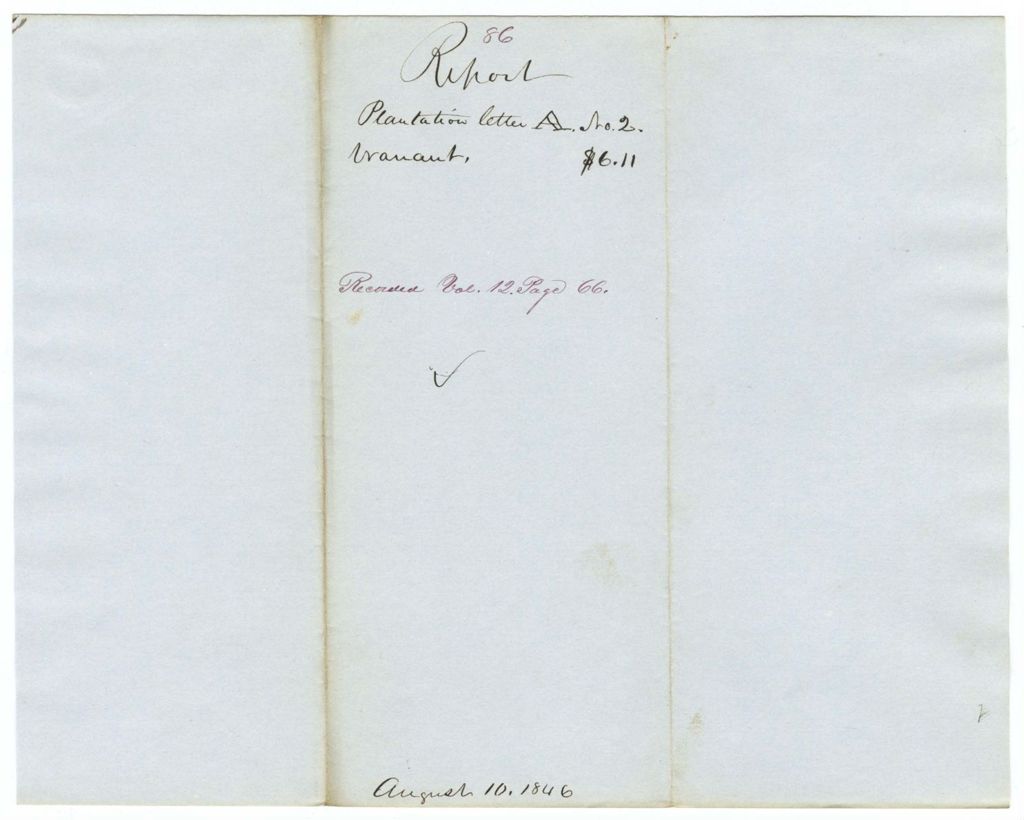 86
Report
Plantation letter A. No. 2.
Warrant. $6.11
Recorded Vol. 12. Page 66.
August 10. 1846